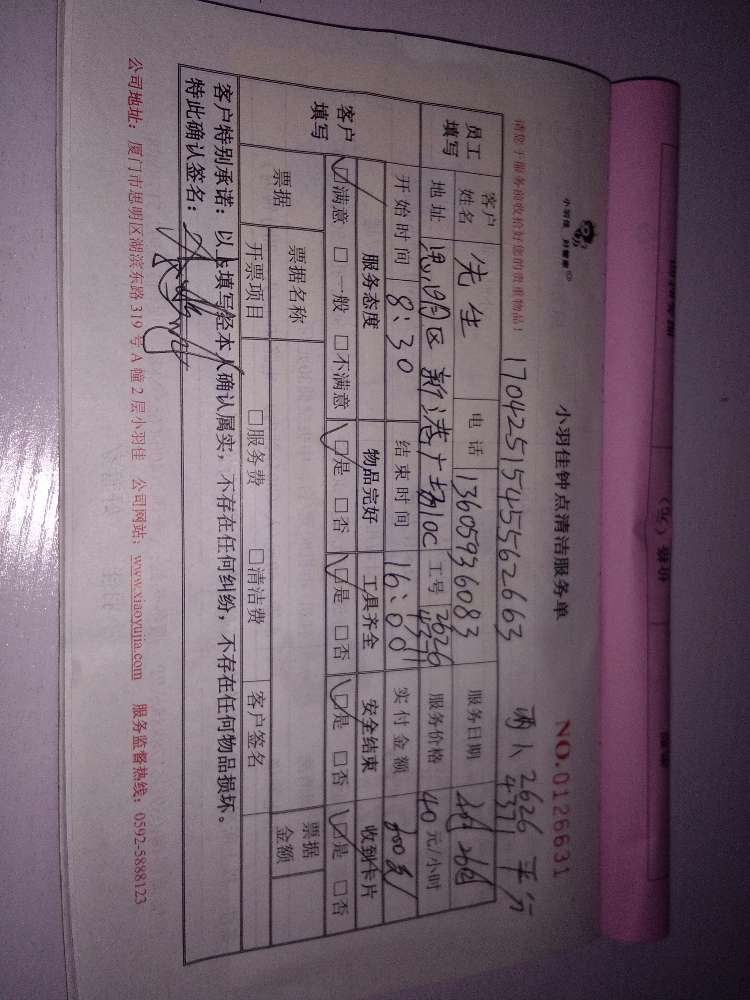 小羽佳 好管家
小羽佳钟点清洁服务单
NO.0126631
请您于服务前收拾好您的贵重物品！
17042515455562663
两人 2626 平分
4371
员工填写
客户姓名 先生 电话 13605936083 服务日期
地址 思明区新港广场10C 工号 2626 4371 服务价格 40元/小时
开始时间 8:30 结束时间 16:00 实付金额
客户填写
服务态度 物品完好 工具齐全 安全结束 收到卡片
☑满意 □一般 □不满意 ☑是 □否 ☑是 □否 ☑是 □否 ☑是 □否
票据 票据名称 票据金额
开票项目 □服务费 □清洁费 客户签名
客户特别承诺：以上填写经本人确认属实，不存在任何纠纷，不存在任何物品损坏。
特此确认签名：
公司地址：厦门市思明区湖滨东路319号A幢2层小羽佳 公司网站：www.xiaoyujia.com 服务监督热线：0592-5888123